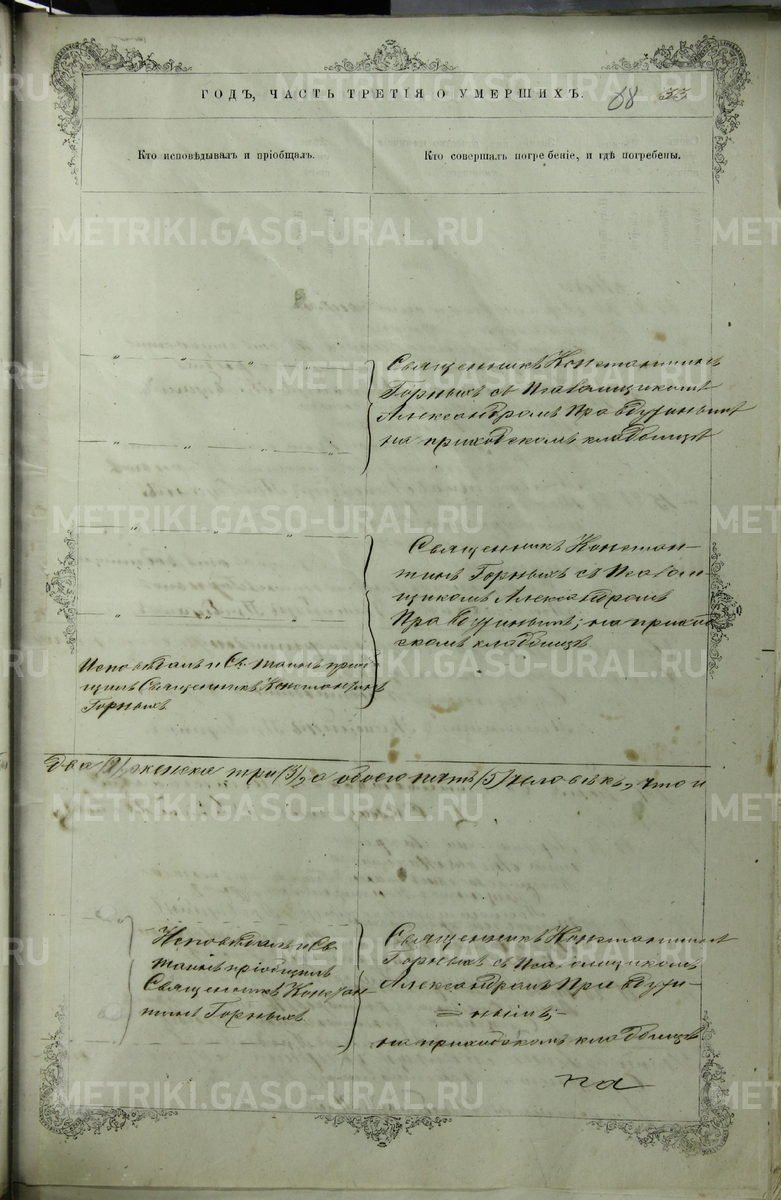 ГОДЪ, ЧАСТЬ ТРЕТІЯ О УМЕРШИХЪ.
68
Кто исповѣдывалъ и пріобщалъ.
Кто совершалъ погребеніе, и гдѣ погребены.
Священникъ Константинъ
Горныхъ съ Псаломщикомъ
Александромъ
на приходскомъ кладбищѣ
Священникъ Констан-
тинъ Горныхъ съ Псалом-
щикомъ Александромъ
на приход
скомъ кладбищѣ
Исповѣдалъ и Св. таинъ пріоб
щилъ Священникъ Константинъ
Горныхъ
два /2/, женска три /3/, а обоего пять /5/ человѣкъ, что и
Исповѣдалъ и Св.
таинъ пріобщилъ
Священникъ Констан
тинъ Горныхъ
Священникъ Константинъ
Горныхъ съ Псаломщикомъ
Александромъ
нымъ;
на приходскомъ кладбищѣ
на
METRIKI.GASO-URAL.RU